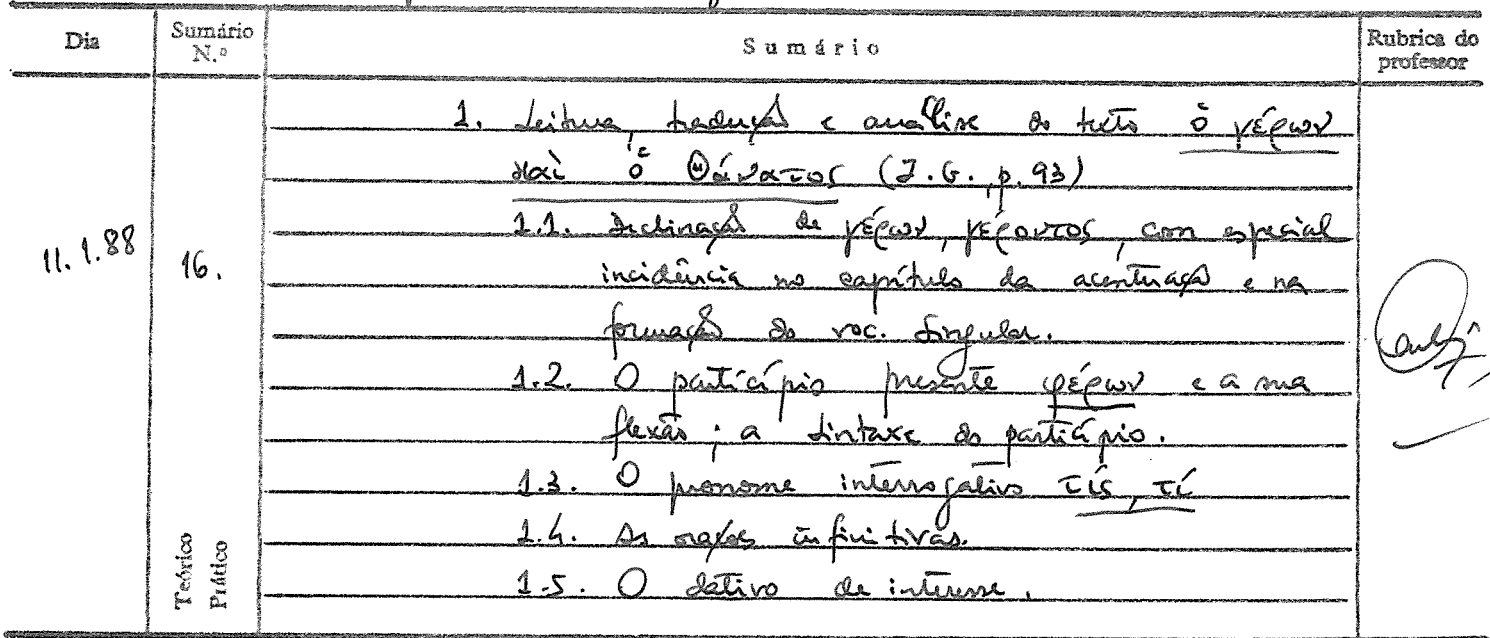 Dia
Sumário
N.º
Sumário
Rubrica do
professor
11.1.88
16.
Teórico
Prático
1. Leitura, tradução e análise do texto ὁ γέρων
καὶ ὁ Θάνατος (I.G., p. 93)
1.1. Declinação de γέρων, γέροντος, com especial
incidência no capítulo da acentuação e na
formação do voc. singular.
1.2. O particípio presente φέρων e a sua
flexão; a sintaxe do particípio.
1.3. O pronome interrogativo τίς, τί
1.4. As orações infinitivas.
1.5. O dativo de interesse.